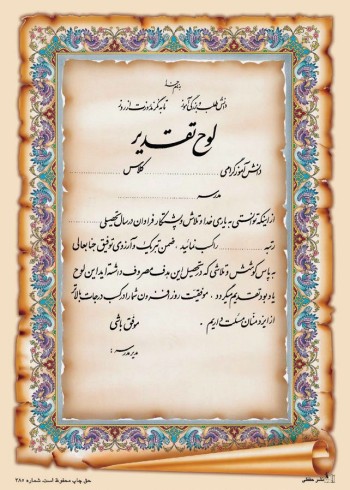 بنام خدا
دانش طلب و بزرگی آموز تا به نگرند روزت از روز
لوح تقدیر
دانش آموز گرامی کلاس
مدرسه
از اینکه توانستی به یاری خدا و تلاش و پشتکار فراوان در سال تحصیلی
رتبه را کسب نمائید . ضمن تبریک و آرزوی توفیق جنابعالی
به پاس کوشش و تلاشی که در تحصیل این هدف مصروف داشته اید این لوح
یادبود تقدیم میگردد . موفقیت روز افزون شما را در کسب درجات بالاتر
از ایزد منان مسئلت داریم .
موفق باشی
مدیر مدرسه :
نشر حافظی
حق چاپ محفوظ است. شماره ۲۸۵